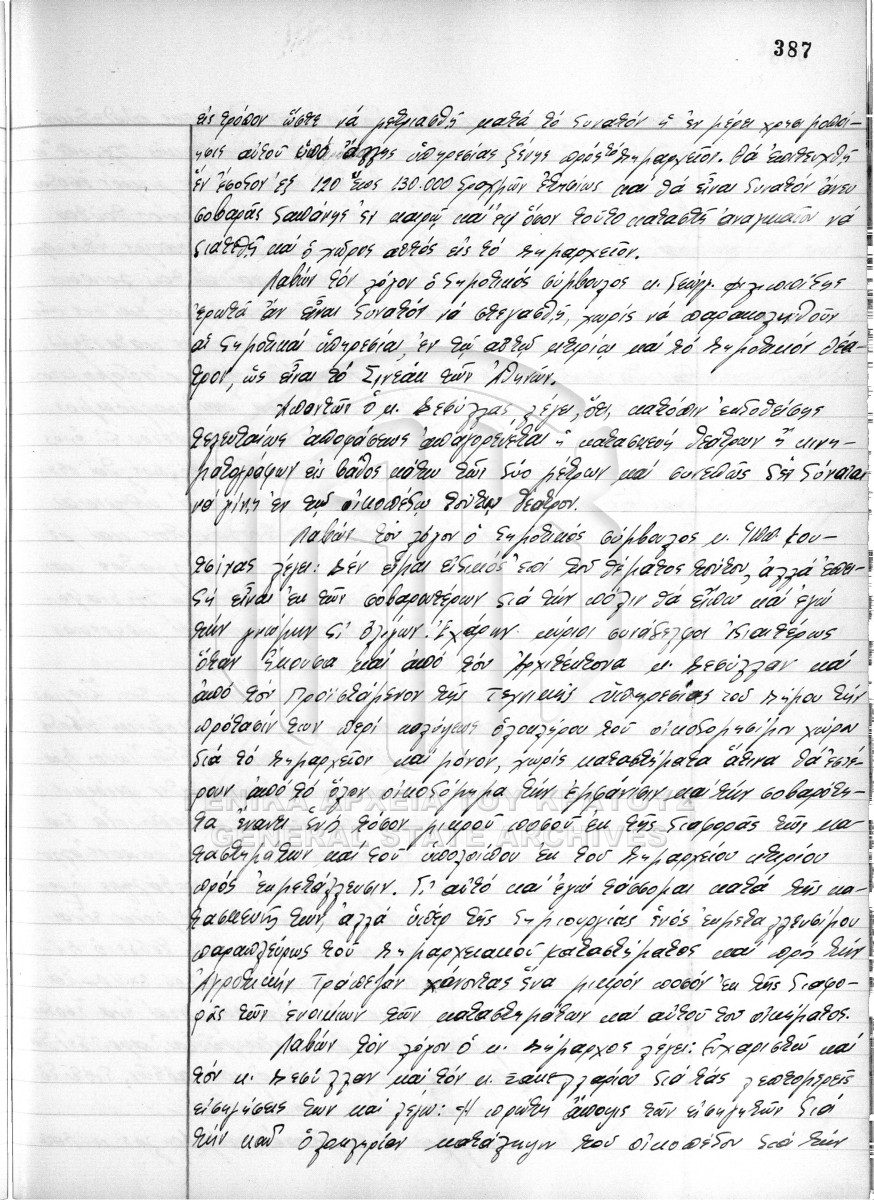 387
εἰς τρόπον ὥστε νά μετριασθῇ κατά τό δυνατόν ἡ ἐν μέρει χρησιμοποί-
ησις αὐτοῦ ὑπό ἄλλης ὑπηρεσίας ξένης πρός τό Δημαρχεῖον. Θά ἐπιτευχθῇ
ἕν ἔσοδον ἐξ 120 ἕως 130.000 δραχμῶν ἐτησίως καί θά εἶναι δυνατόν ἄνευ
σοβαρᾶς δαπάνης ἐν καιρῷ καί ἐφ' ὅσον τοῦτο καταστῇ ἀναγκαῖον νά
διατεθῇ καί ὁ χῶρος αὐτός εἰς τό Δημαρχεῖον.
Λαβών τόν λόγον ὁ δημοτικός σύμβουλος κ. Γεώργ. Φιλιππίδης
ἐρωτᾷ ἄν εἶναι δυνατόν νά στεγασθῇ, χωρίς νά παρακωλυθοῦν
αἱ δημοτικαί ὑπηρεσίαι, ἐν τῷ αὐτῷ κτιρίῳ καί τό Δημοτικόν Θέα-
τρον, ὡς εἶναι τό Σινεάκ τῶν Ἀθηνῶν.
Ἀπαντῶν ὁ κ. Δεσύλλας λέγει, ὅτι, κατόπιν ἐκδοθείσης
τελευταίως ἀποφάσεως ἀπαγορεύεται ἡ κατασκευή θεάτρων ἤ κινη-
ματογράφων εἰς βάθος κάτω τῶν δύο μέτρων καί συνεπῶς δέν δύναται
νά γίνῃ ἐν τῷ οἰκοπέδῳ τούτῳ θέατρον.
Λαβών τόν λόγον ὁ δημοτικός σύμβουλος κ. Ἱππ. Κου-
τσίχας λέγει: Δέν εἶμαι εἰδικός ἐπί τοῦ θέματος τούτου, ἀλλά ἐπει-
δή εἶναι ἐκ τῶν σοβαρωτέρων διά τήν πόλιν θά εἴπω καί ἐγώ
τήν γνώμην δι' ὀλίγων. Ἐχάρην κύριοι συνάδελφοι ἰδιαιτέρως
ὅταν ἤκουσα καί ἀπό τόν Ἀρχιτέκτονα κ. Δεσύλλαν καί
ἀπό τόν Προϊστάμενον τῆς Τεχνικῆς ὑπηρεσίας τοῦ Δήμου τήν
πρότασίν των περί καλύψεως ὁλοκλήρου τοῦ οἰκοδομησίμου χώρου
διά τό Δημαρχεῖον καί μόνον, χωρίς καταστήματα ἅτινα θά ἐστέ-
ρουν ἀπό τό ὅλον οἰκοδόμημα τήν ἐμφάνισιν καί τήν σοβαρότη-
τα ἔναντι ἑνός τόσον μικροῦ ποσοῦ ἐκ τῆς διαφορᾶς τῶν κα-
ταστημάτων καί τοῦ ὑπολοίπου ἐκ τοῦ Δημαρχείου κτιρίου
πρός ἐκμετάλλευσιν. Γι' αὐτό καί ἐγώ τάσσομαι κατά τῆς κα-
τασκευῆς των, ἀλλά ὑπέρ τῆς δημιουργίας ἑνός ἐκμεταλλευσίμου
παραπλεύρως τοῦ Δημαρχειακοῦ καταστήματος καί πρός τήν
Ἀγροτικήν Τράπεζαν χάνοντας ἕνα μικρόν ποσόν ἐκ τῆς διαφο-
ρᾶς τῶν ἐνοικίων τῶν καταστημάτων καί αὐτοῦ τοῦ οἰκήματος.
Λαβών τόν λόγον ὁ κ. Δήμαρχος λέγει: Εὐχαριστῶ καί
τόν κ. Δεσύλλαν καί τόν κ. Σακελλαρίου διά τάς λεπτομερεῖς
εἰσηγήσεις των καί λέγω: Ἡ πρώτη ἄποψις τῶν εἰσηγητῶν διά
τήν καθ' ὁλοκληρίαν κατάληψιν τοῦ οἰκοπέδου διά τήν
ΓΕΝΙΚΑ ΑΡΧΕΙΑ ΤΟΥ ΚΡΑΤΟΥΣ
GENERAL STATE ARCHIVES